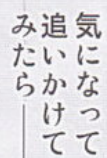 気になって
追いかけて
みたら――